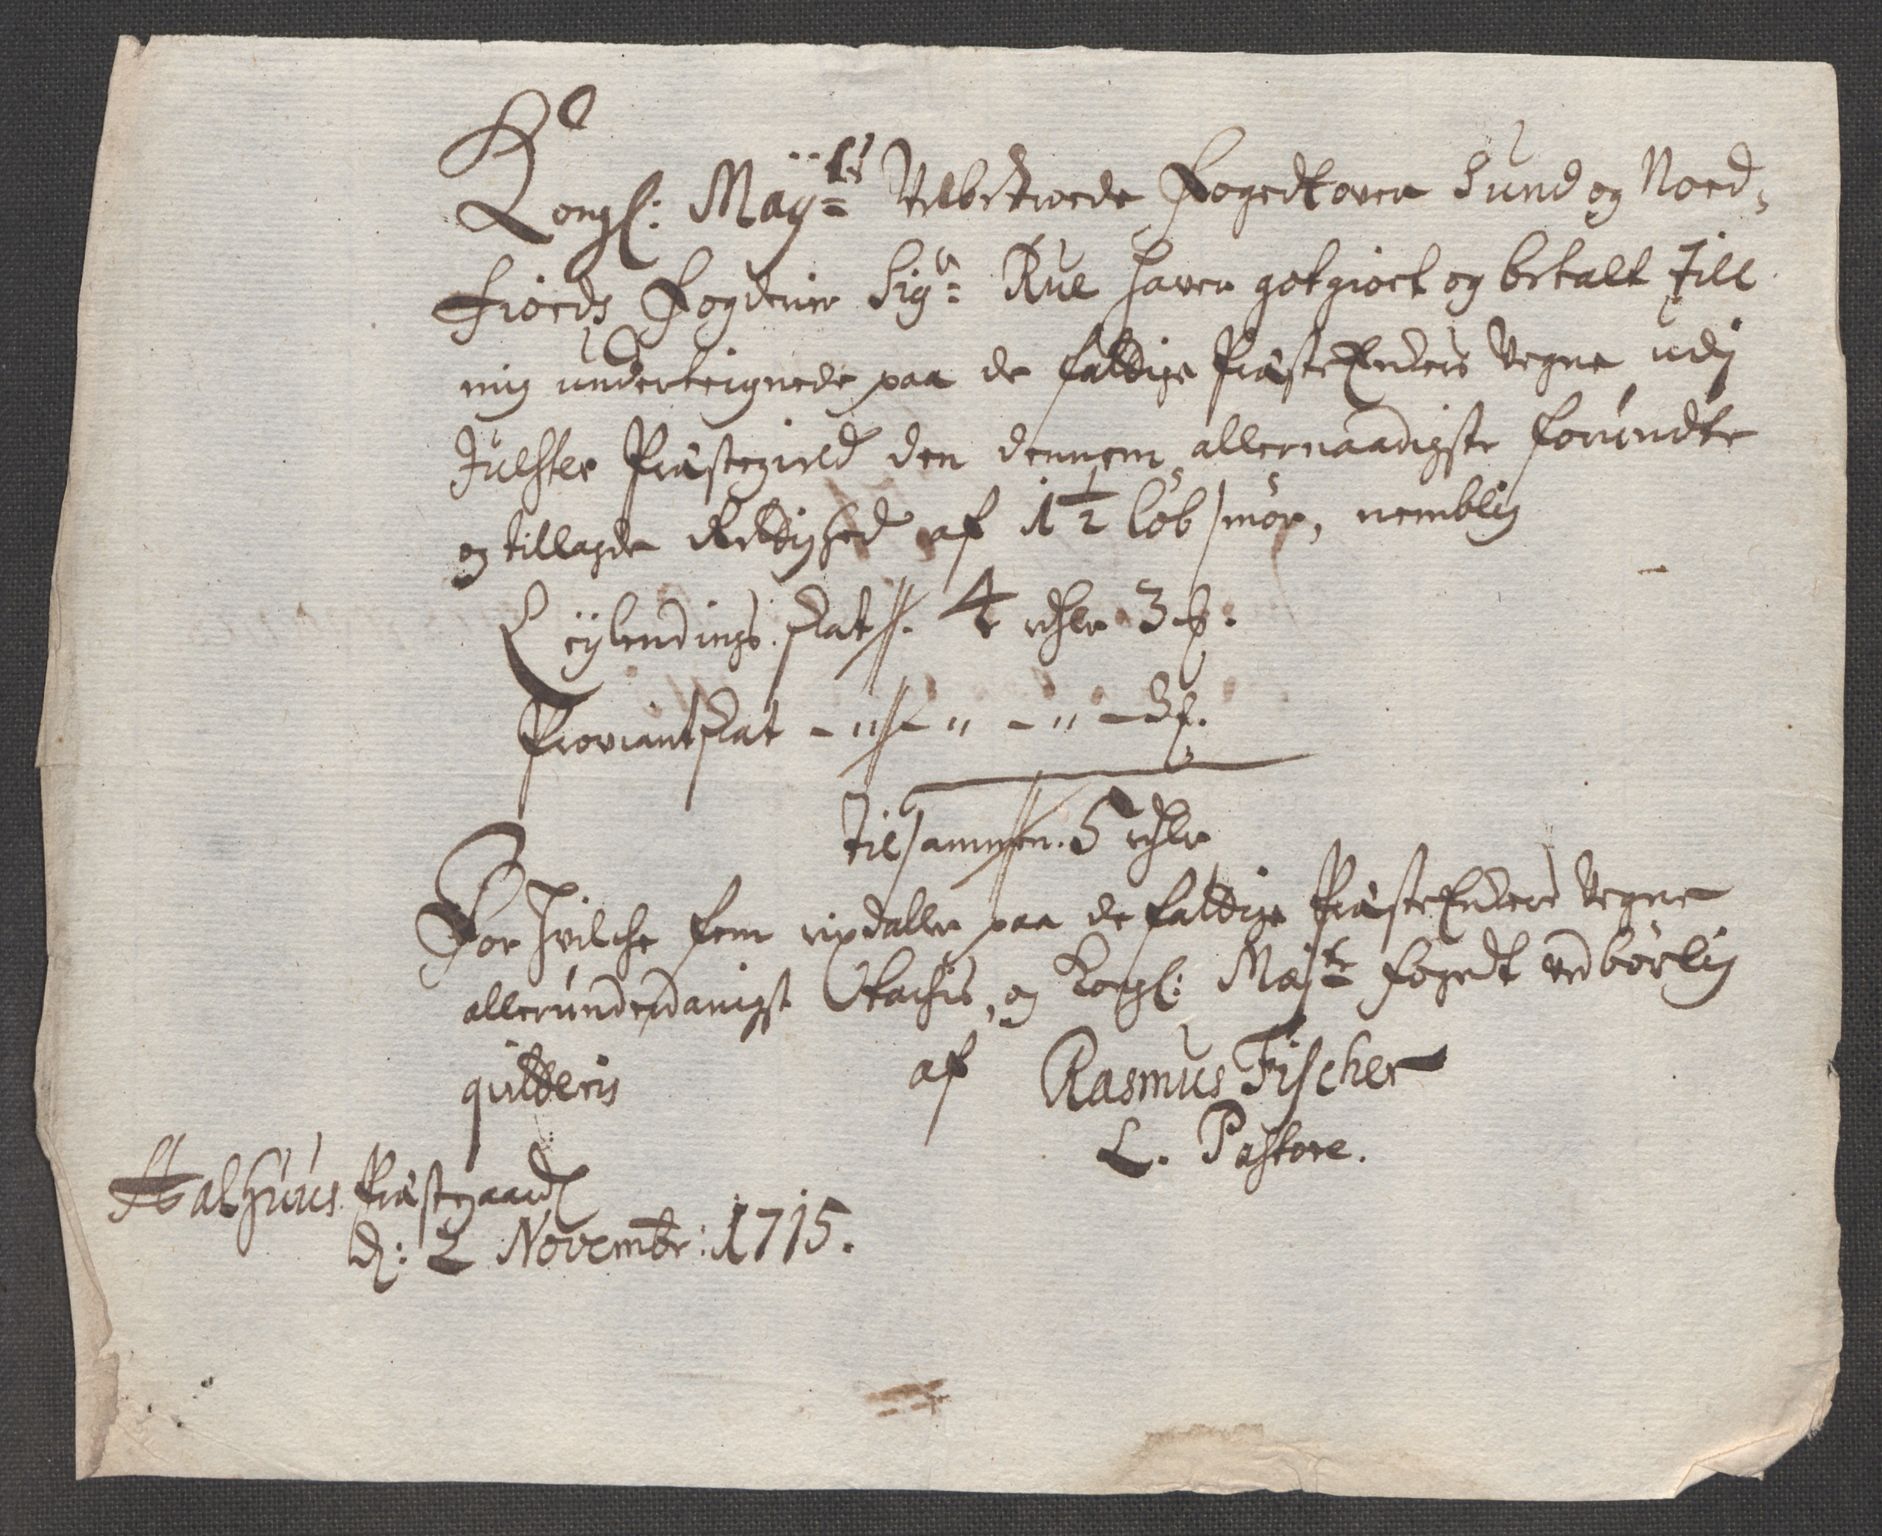 Kongl: Mayts Velbetroede Fogedt over Sund og Nord-
fiords Fogderier Sigr Rue haver got giort og betalt Till
mig underteignede paa de fattige Præste Enchers Vegne udj
Julster Præstegield den dennem allernaadigste forundte
og tillagde Rettighed af 1½ løb smør, nemblig
Leylendings skat 4 rdhlr 3 ß.
Proviant skat - " - " - " -
Tilsammen. 5 rdhlr
For hvilche fem rixdaller paa de fattige Præste Enchers Vegne
allerunderdanigst tachis, og Kongl: Majts fogedt vedbørlig
qvitteris af Rasmus Fischer
L. Pastore.
Aalhuus Præstegaard
d: 2 Novembr: 1715.